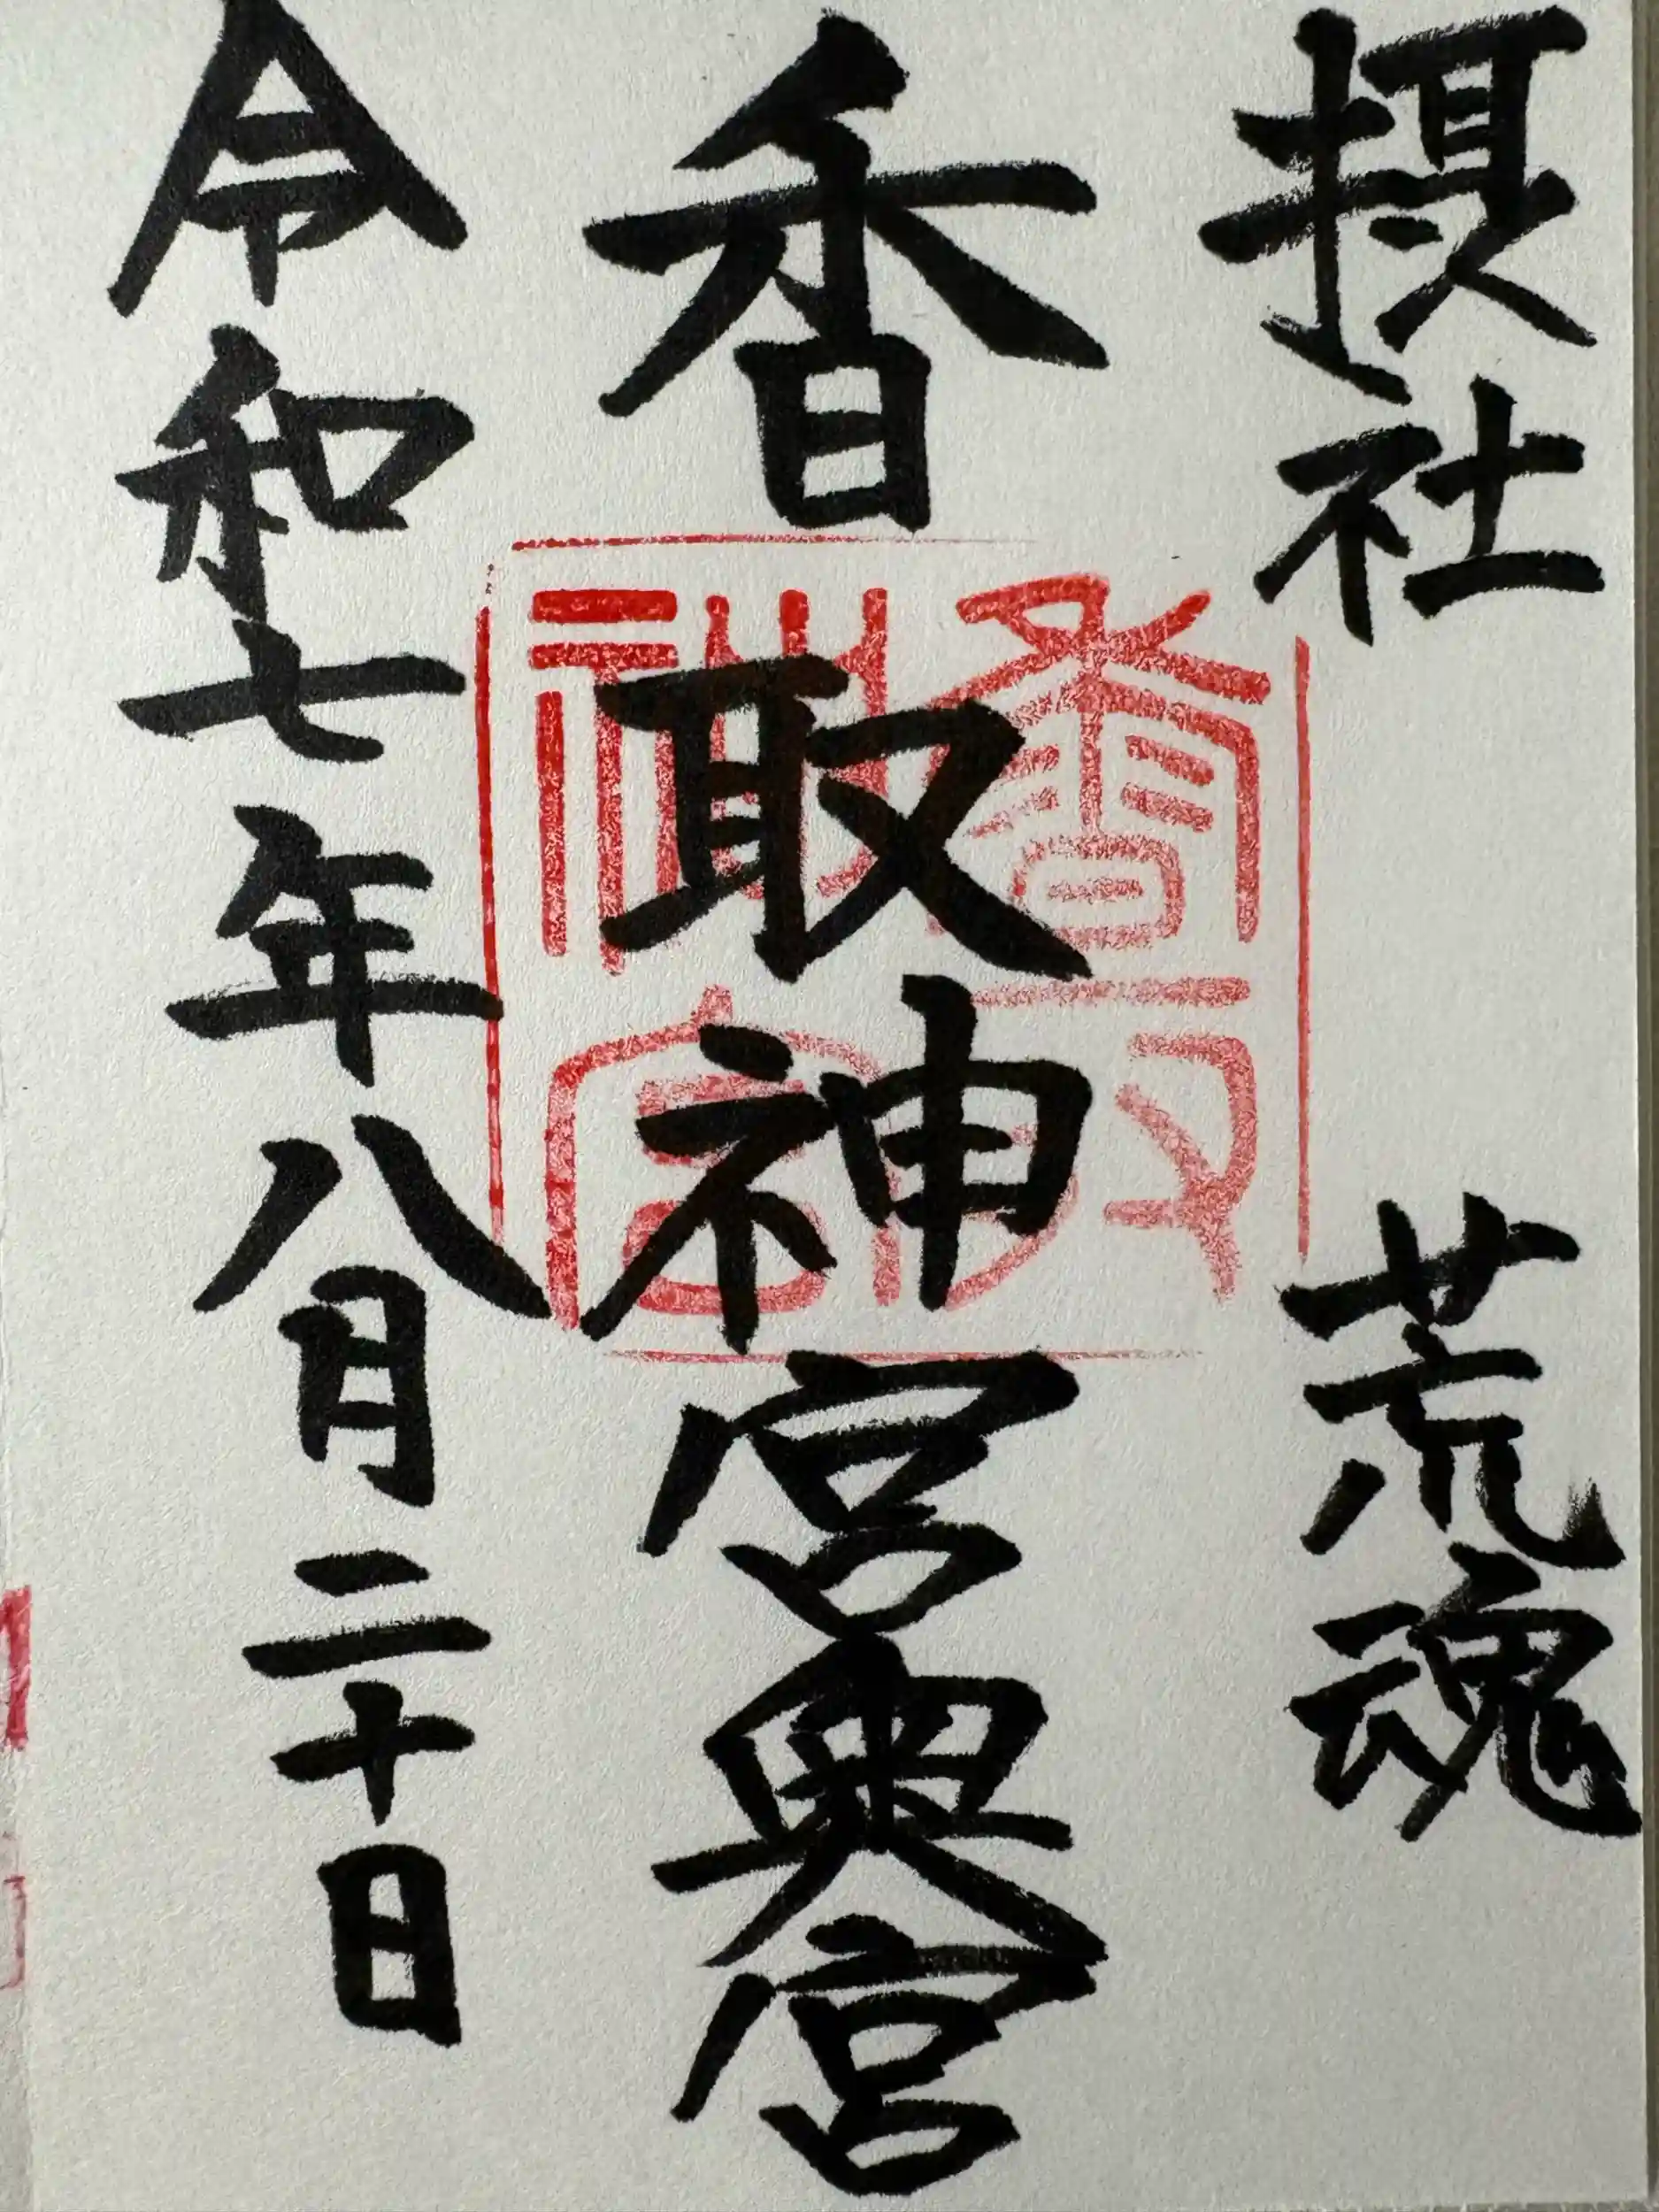 摂社 荒魂
香取神宮奥宮
令和七年八月二十日
香取
神宮